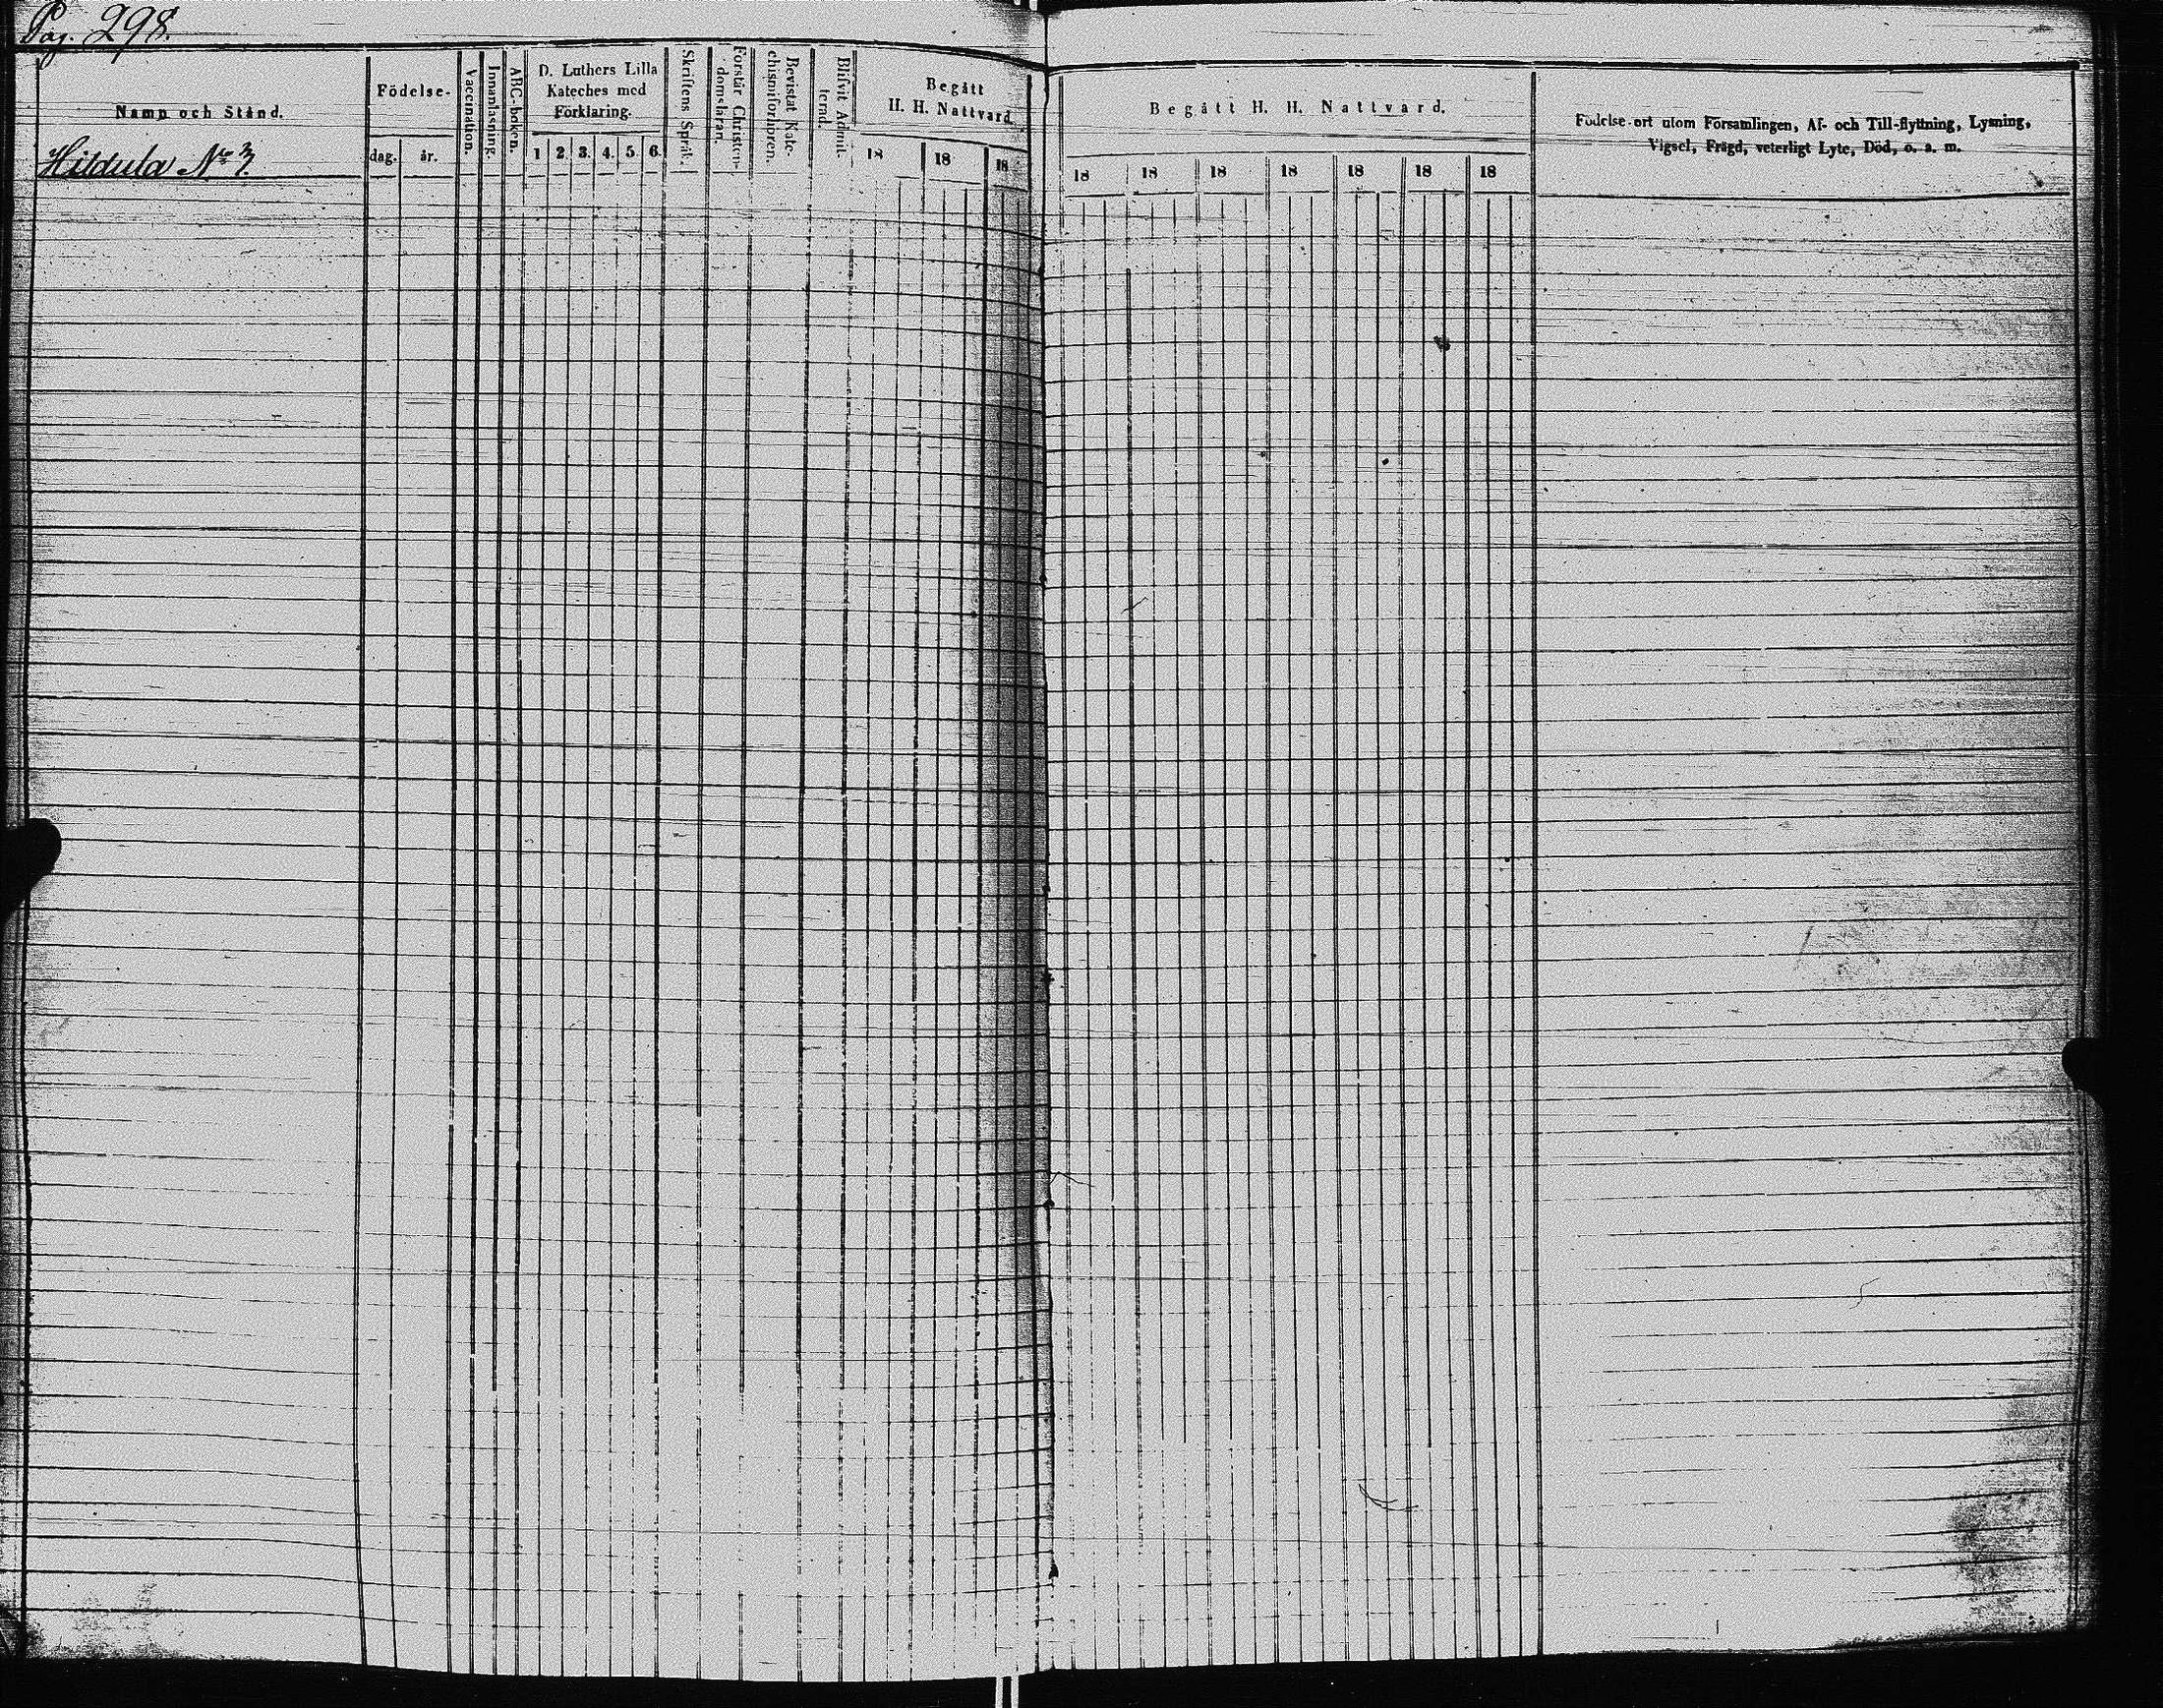 Pag. 298.
Namn och Stånd.
Hildula No 3.
Födelse-
dag. år.
Vaccination.
Innanläsning.
ABC-boken.
D. Luthers Lilla
Kateches med
Förklaring.
1 2. 3. 4. 5. 6.
Skriftens Språk.
Förstår Christen-
domsläran.
Bevistat Kate-
chismiförhören.
Blifvit Admit-
terad.
Begått
H. H. Nattvard.
18 18 18
Begått H. H. Nattvard.
18 18 18 18 18 18 18
Födelse-ort utom Församlingen, Af- och Till-flyttning, Lysning,
Vigsel, Frägd, veterligt Lyte, Död, o. s. m.